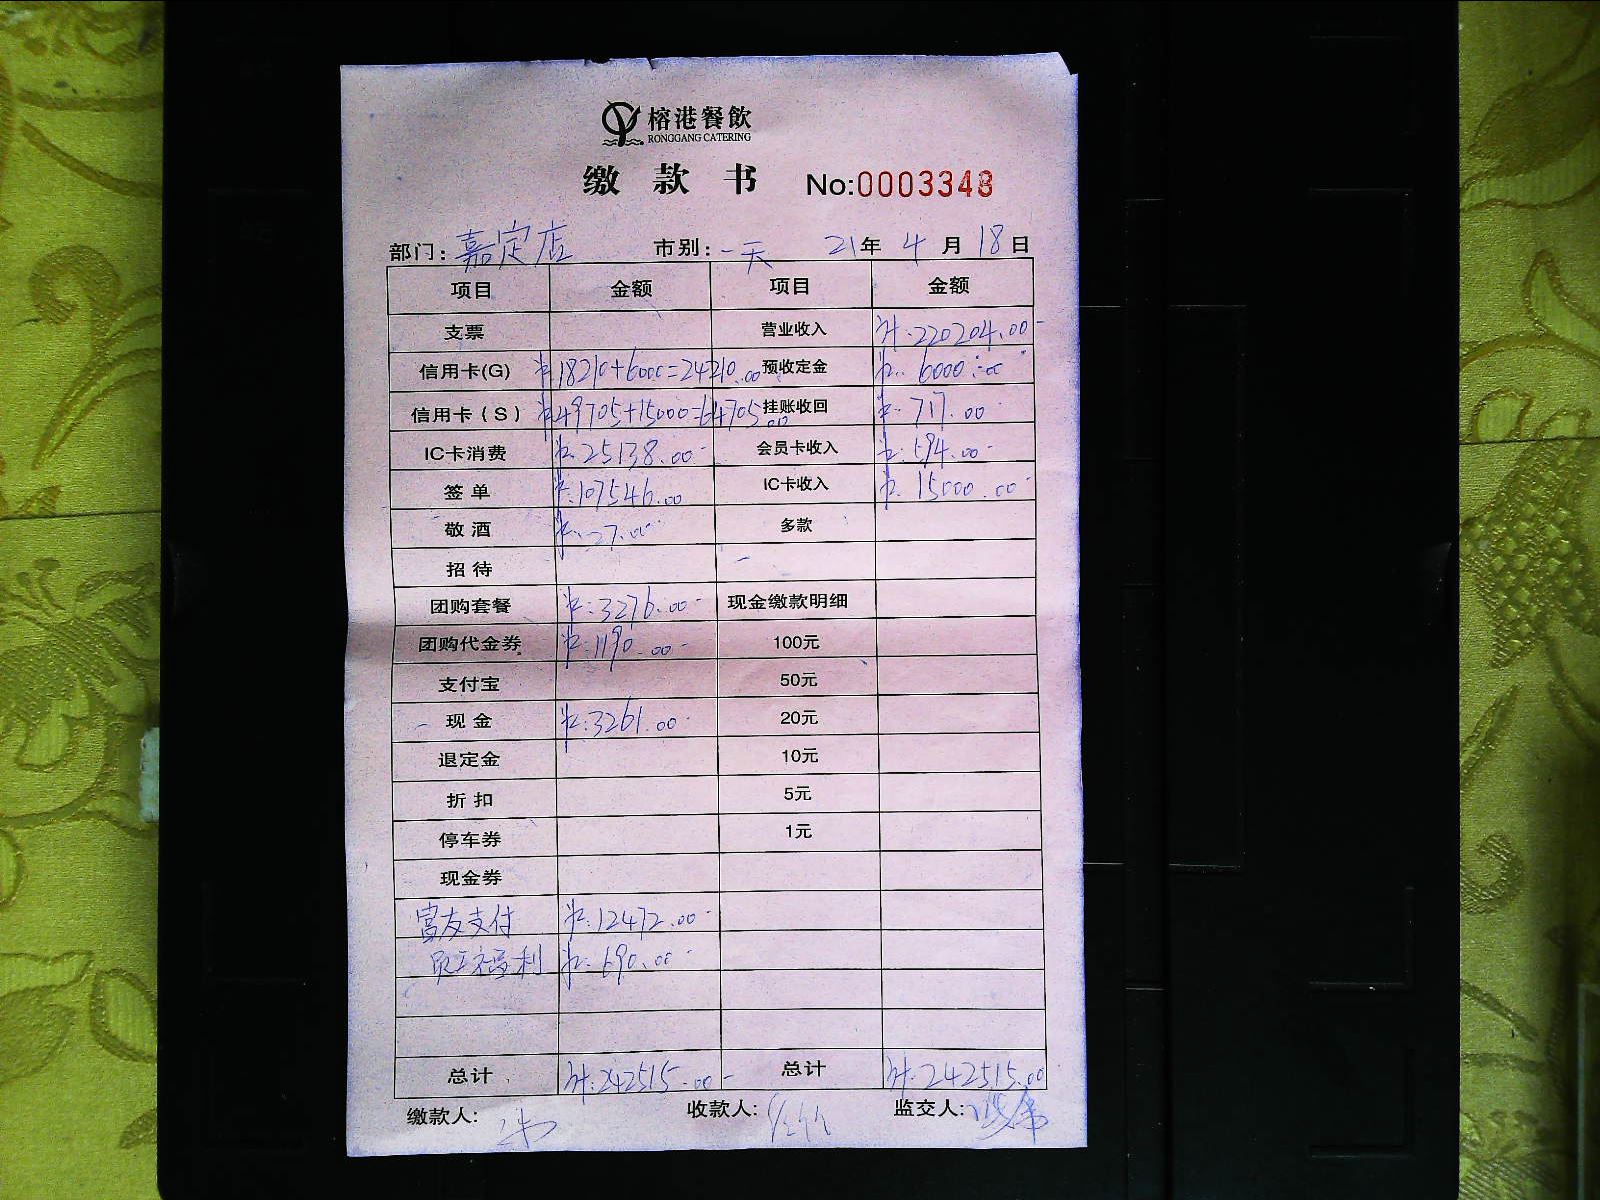 榕港餐飲
RONGGANG CATERING
缴款书 No:0003348
部门:嘉定店 市别:一天 21年4月18日
项目 金额 项目 金额
支票 营业收入 ¥:220204.00-
信用卡(G) ¥18210+6000=24210.00 预收定金 ¥:6000.00
信用卡(S) ¥49705+15000=64705.00 挂账收回 ¥:717.00
IC卡消费 ¥:25138.00- 会员卡收入 ¥:594.00-
签单 ¥:107546.00 IC卡收入 ¥:15000.00-
敬酒 ¥:27.00 多款
招待
团购套餐 ¥:3276.00- 现金缴款明细
团购代金券 ¥:1190.00- 100元
支付宝 50元
现金 ¥:3261.00 20元
退定金 10元
折扣 5元
停车券 1元
现金券
富友支付 ¥:12472.00-
福利 ¥:690.00-
总计 ¥:242515.00- 总计 ¥:242515.00
缴款人: 收款人: 监交人: